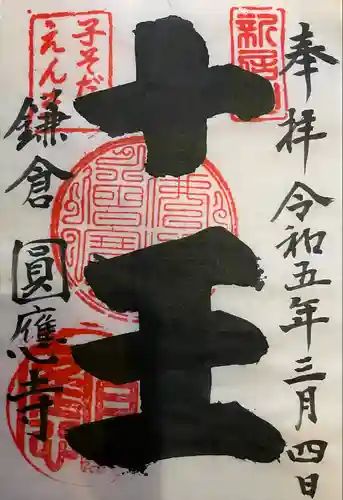 奉拝
令和五年三月四日
新居山
十王
子そだて
えんま
鎌倉
圓應寺